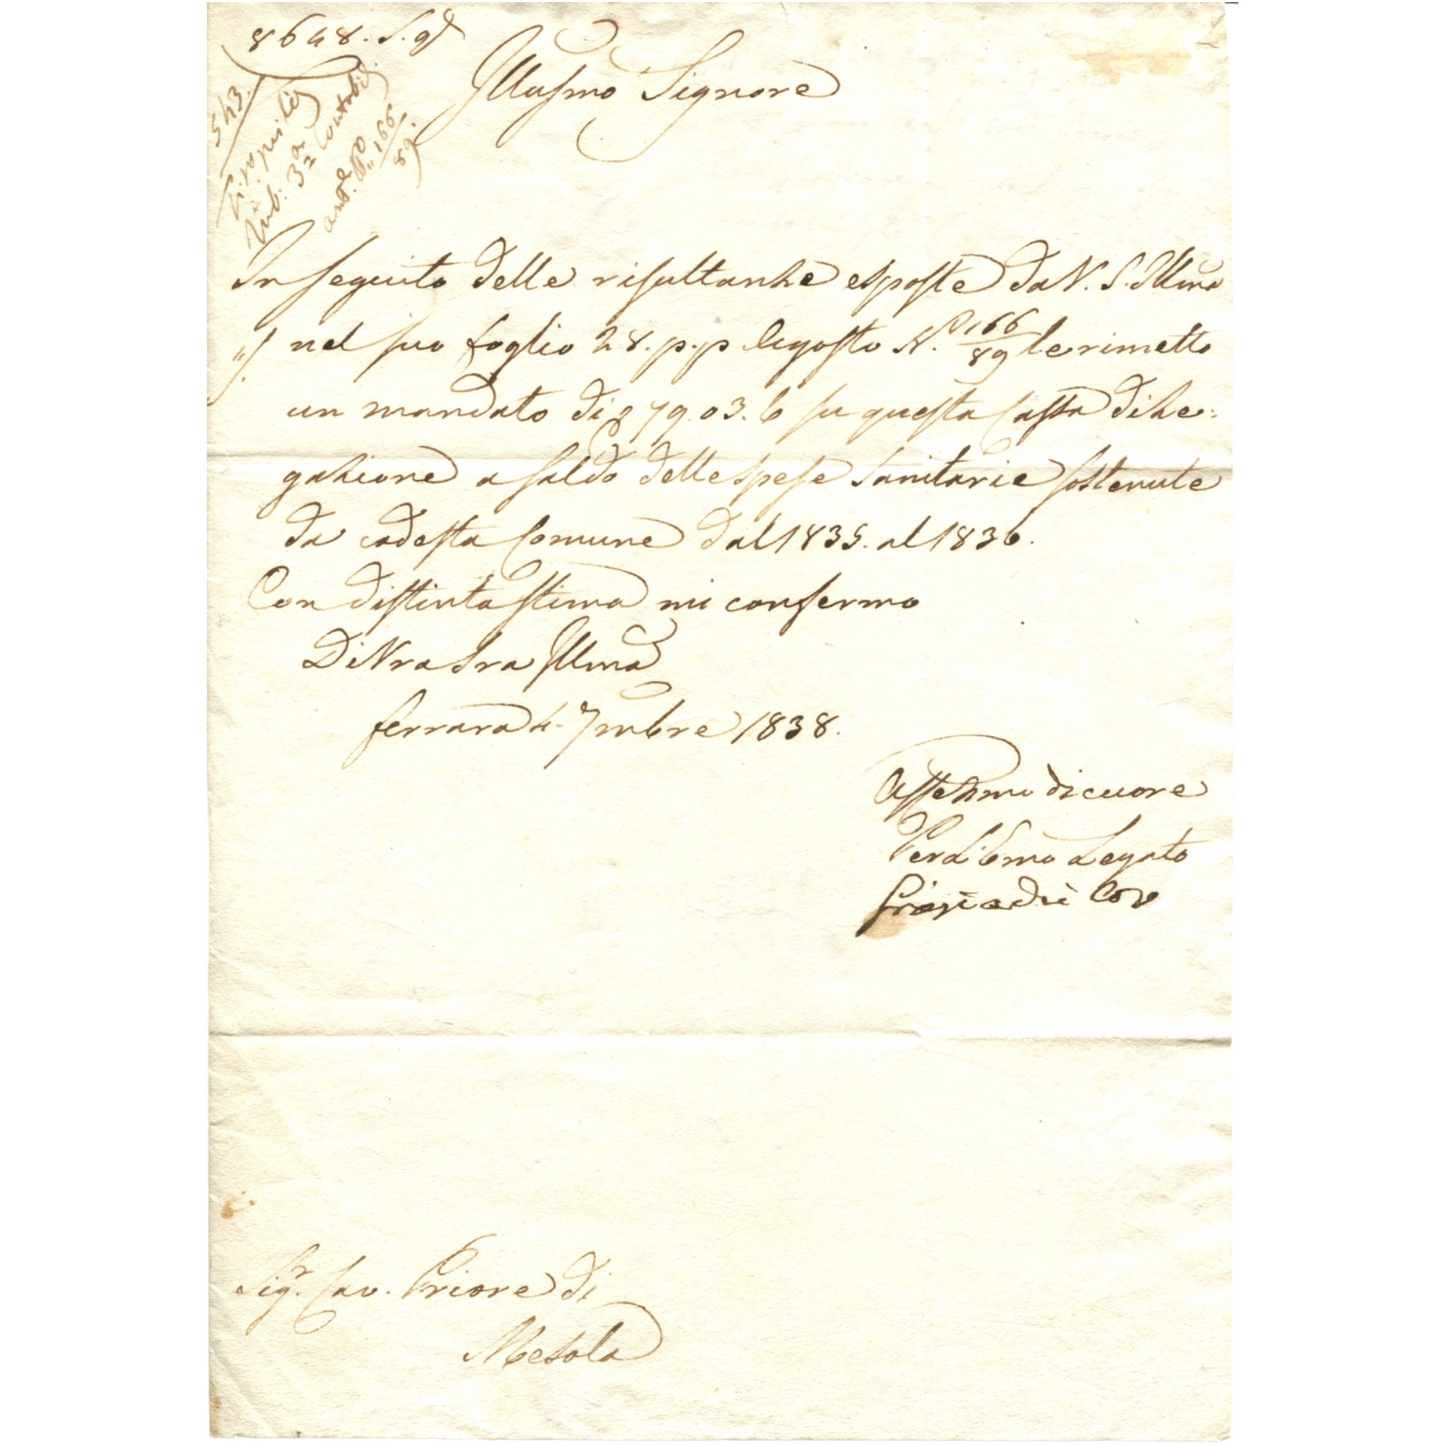 8648. S. g.
543.
Tit. 3a Contabi
Rub.
ands. No 166/89.
Illustmo Signore
In seguito delle risultanze esposte da V. S. Illma
nel suo foglio 28. p.p. Agosto N.o 166/89 le rimetto
un mandato di 79.03.6 su questa Cassa di Le:
gazione a saldo delle spese Sanitarie sostenute
da codesta Comune dal 1835. al 1836.
Con distinta stima mi confermo
Di Vra Sra Illma
Ferrara 4. 7mbre 1838.
Affezmo di cuore
Per l'Emo Legato
Graziadei Con
Sigr. Cav. Priore di
Mesola